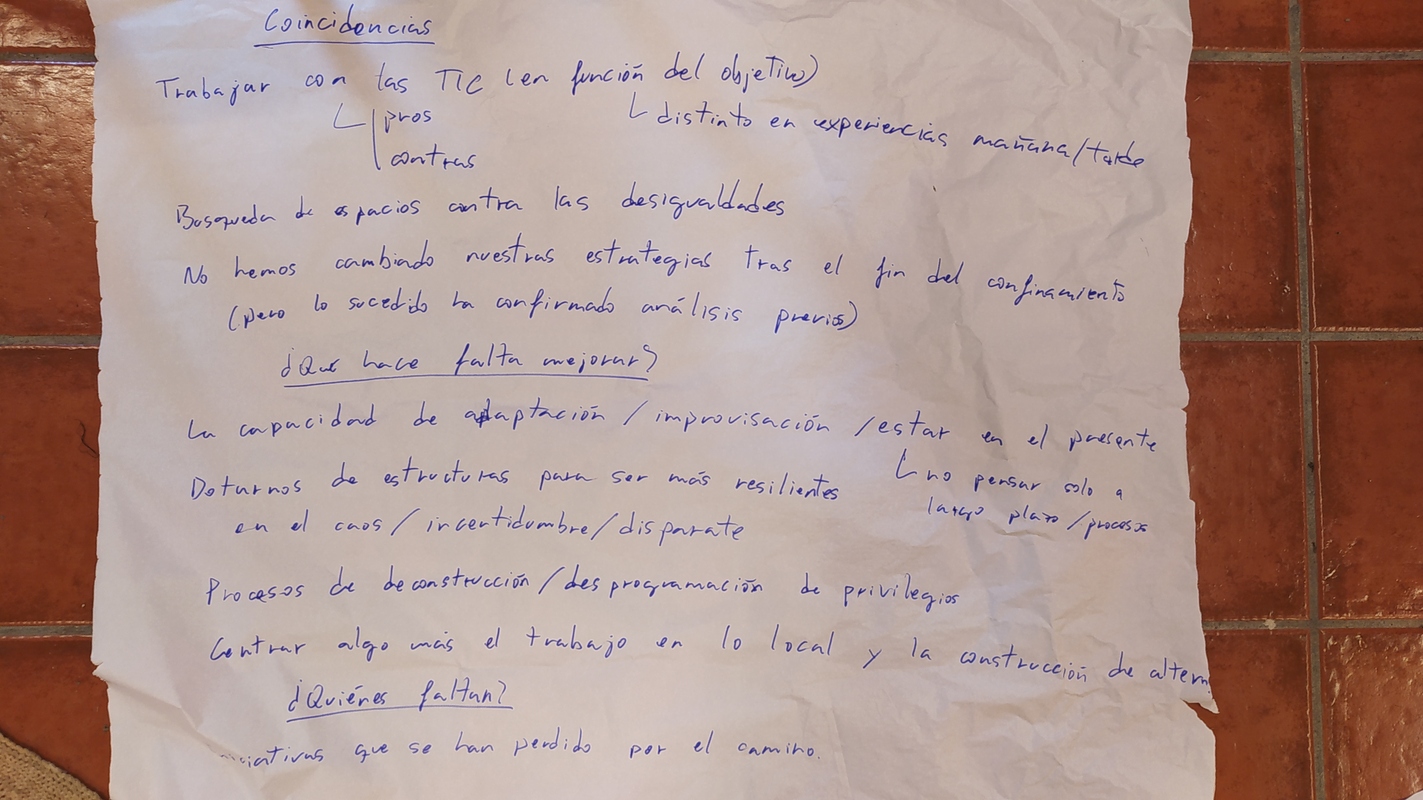 Coincidencias
Trabajar con las TIC (en función del objetivo)
pros
contras
distinto en experiencias mañana/tarde
Busqueda de espacios contra las desigualdades
No hemos cambiado nuestras estrategias tras el fin del confinamiento
(pero lo sucedido ha confirmado análisis previos)
¿Qué hace falta mejorar?
La capacidad de adaptación / improvisación / estar en el presente
no pensar solo a
largo plazo / procesos
Dotarnos de estructuras para ser más resilientes
en el caos / incertidumbre / disparate
Procesos de deconstrucción / desprogramación de privilegios
Centrar algo más el trabajo en lo local y la construcción de altern
¿Quiénes faltan?
que se han perdido por el camino.